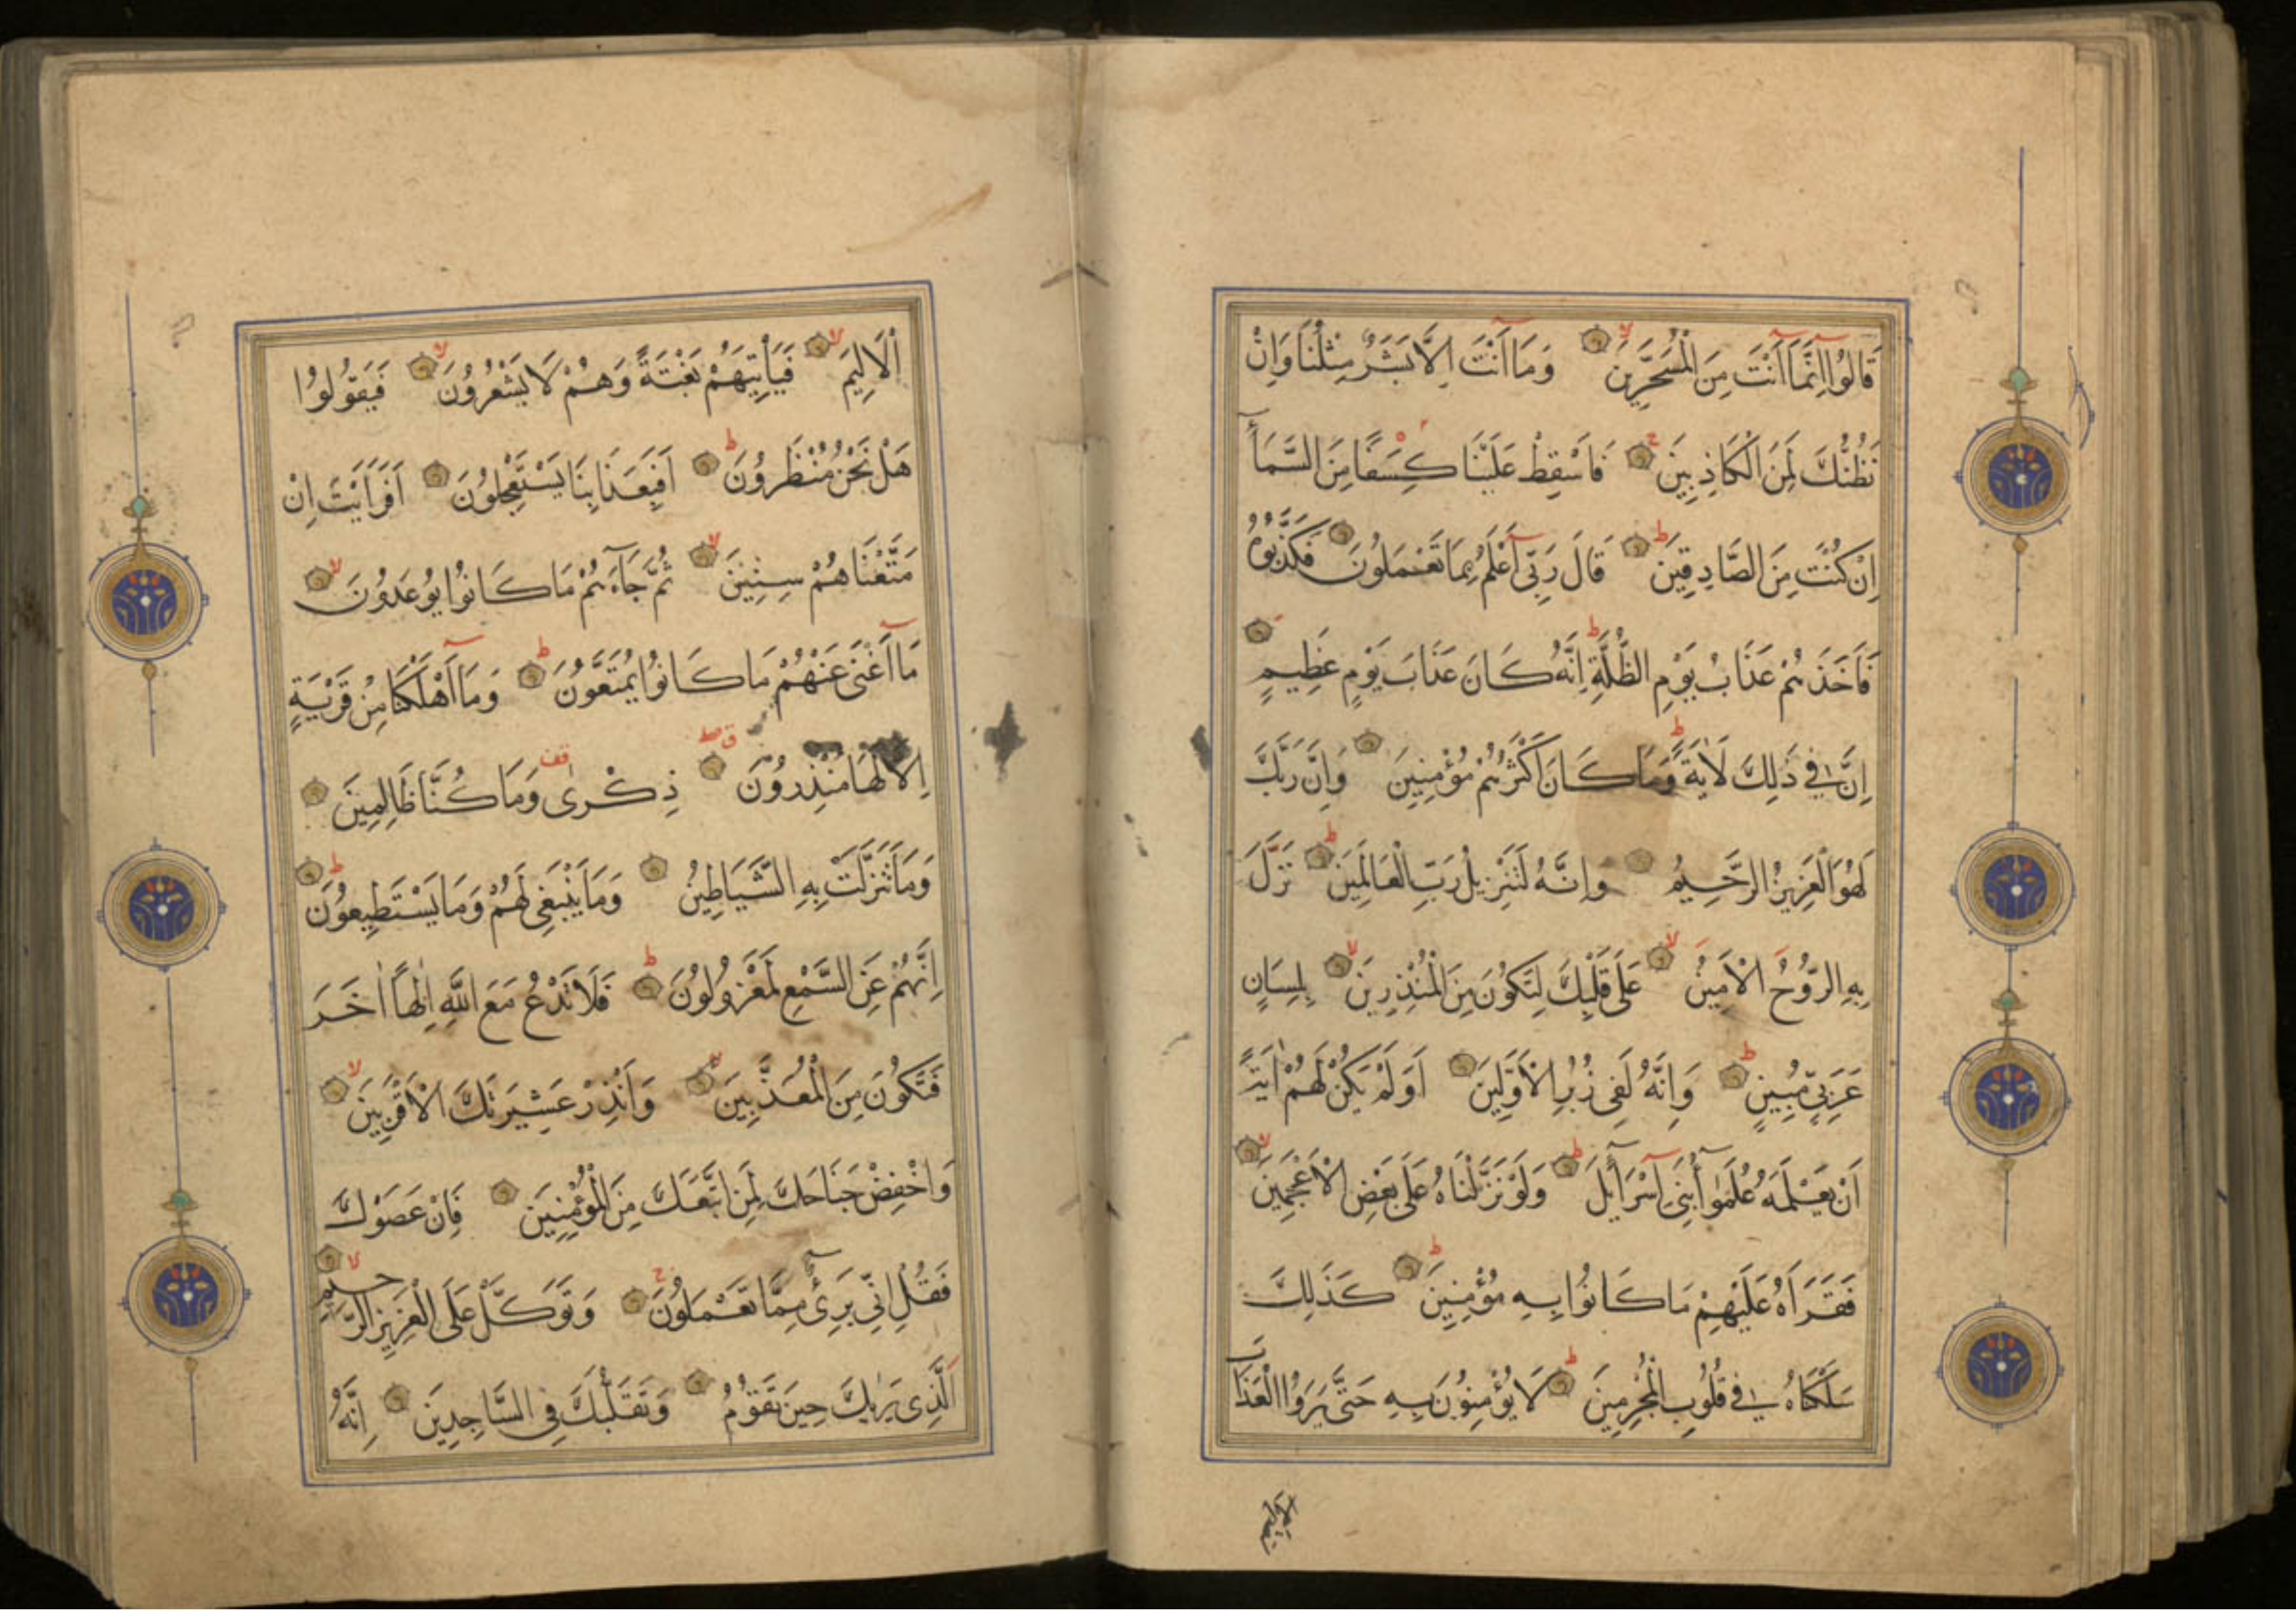 قَالُوا اِنَّمَا اَنْتَ مِنَ الْمُسَحَّرِينَ وَمَا اَنْتَ اِلَّا بَشَرٌ مِثْلُنَا وَاِنْ
نَظُنُّكَ لَمِنَ الْكَاذِبِينَ فَاَسْقِطْ عَلَيْنَا كِسَفًا مِنَ السَّمَاءِ
اِنْ كُنْتَ مِنَ الصَّادِقِينَ قَالَ رَبِّى اَعْلَمُ بِمَا تَعْمَلُونَ فَكَذَّبُوهُ
فَاَخَذَهُمْ عَذَابُ يَوْمِ الظُّلَّةِ اِنَّهُ كَانَ عَذَابَ يَوْمٍ عَظِيمٍ
اِنَّ فِى ذٰلِكَ لَاٰيَةً وَمَا كَانَ اَكْثَرُهُمْ مُؤْمِنِينَ وَاِنَّ رَبَّكَ
لَهُوَ الْعَزِيزُ الرَّحِيمُ وَاِنَّهُ لَتَنْزِيلُ رَبِّ الْعَالَمِينَ نَزَلَ
بِهِ الرُّوحُ الْاَمِينُ عَلَى قَلْبِكَ لِتَكُونَ مِنَ الْمُنْذِرِينَ بِلِسَانٍ
عَرَبِىٍّ مُبِينٍ وَاِنَّهُ لَفِى زُبُرِ الْاَوَّلِينَ اَوَلَمْ يَكُنْ لَهُمْ اٰيَةً
اَنْ يَعْلَمَهُ عُلَمٰؤُا بَنِى اِسْرَائِيلَ وَلَوْ نَزَّلْنَاهُ عَلَى بَعْضِ الْاَعْجَمِينَ
فَقَرَاَهُ عَلَيْهِمْ مَا كَانُوا بِهِ مُؤْمِنِينَ كَذٰلِكَ
سَلَكْنَاهُ فِى قُلُوبِ الْمُجْرِمِينَ لَا يُؤْمِنُونَ بِهِ حَتَّى يَرَوُا الْعَذَابَ
الاليم
اَلْاَلِيمَ فَيَاْتِيَهُمْ بَغْتَةً وَهُمْ لَا يَشْعُرُونَ فَيَقُولُوا
هَلْ نَحْنُ مُنْظَرُونَ اَفَبِعَذَابِنَا يَسْتَعْجِلُونَ اَفَرَاَيْتَ اِنْ
مَتَّعْنَاهُمْ سِنِينَ ثُمَّ جَاءَهُمْ مَا كَانُوا يُوعَدُونَ
مَا اَغْنَى عَنْهُمْ مَا كَانُوا يُمَتَّعُونَ وَمَا اَهْلَكْنَا مِنْ قَرْيَةٍ
اِلَّا لَهَا مُنْذِرُونَ ذِكْرٰى وَمَا كُنَّا ظَالِمِينَ
وَمَا تَنَزَّلَتْ بِهِ الشَّيَاطِينُ وَمَا يَنْبَغِى لَهُمْ وَمَا يَسْتَطِيعُونَ
اِنَّهُمْ عَنِ السَّمْعِ لَمَعْزُولُونَ فَلَا تَدْعُ مَعَ اللّٰهِ اِلٰهًا اٰخَرَ
فَتَكُونَ مِنَ الْمُعَذَّبِينَ وَاَنْذِرْ عَشِيرَتَكَ الْاَقْرَبِينَ
وَاخْفِضْ جَنَاحَكَ لِمَنِ اتَّبَعَكَ مِنَ الْمُؤْمِنِينَ فَاِنْ عَصَوْكَ
فَقُلْ اِنِّى بَرِىءٌ مِمَّا تَعْمَلُونَ وَتَوَكَّلْ عَلَى الْعَزِيزِ الرَّحِيمِ
اَلَّذِى يَرٰيكَ حِينَ تَقُومُ وَتَقَلُّبَكَ فِى السَّاجِدِينَ اِنَّهُ